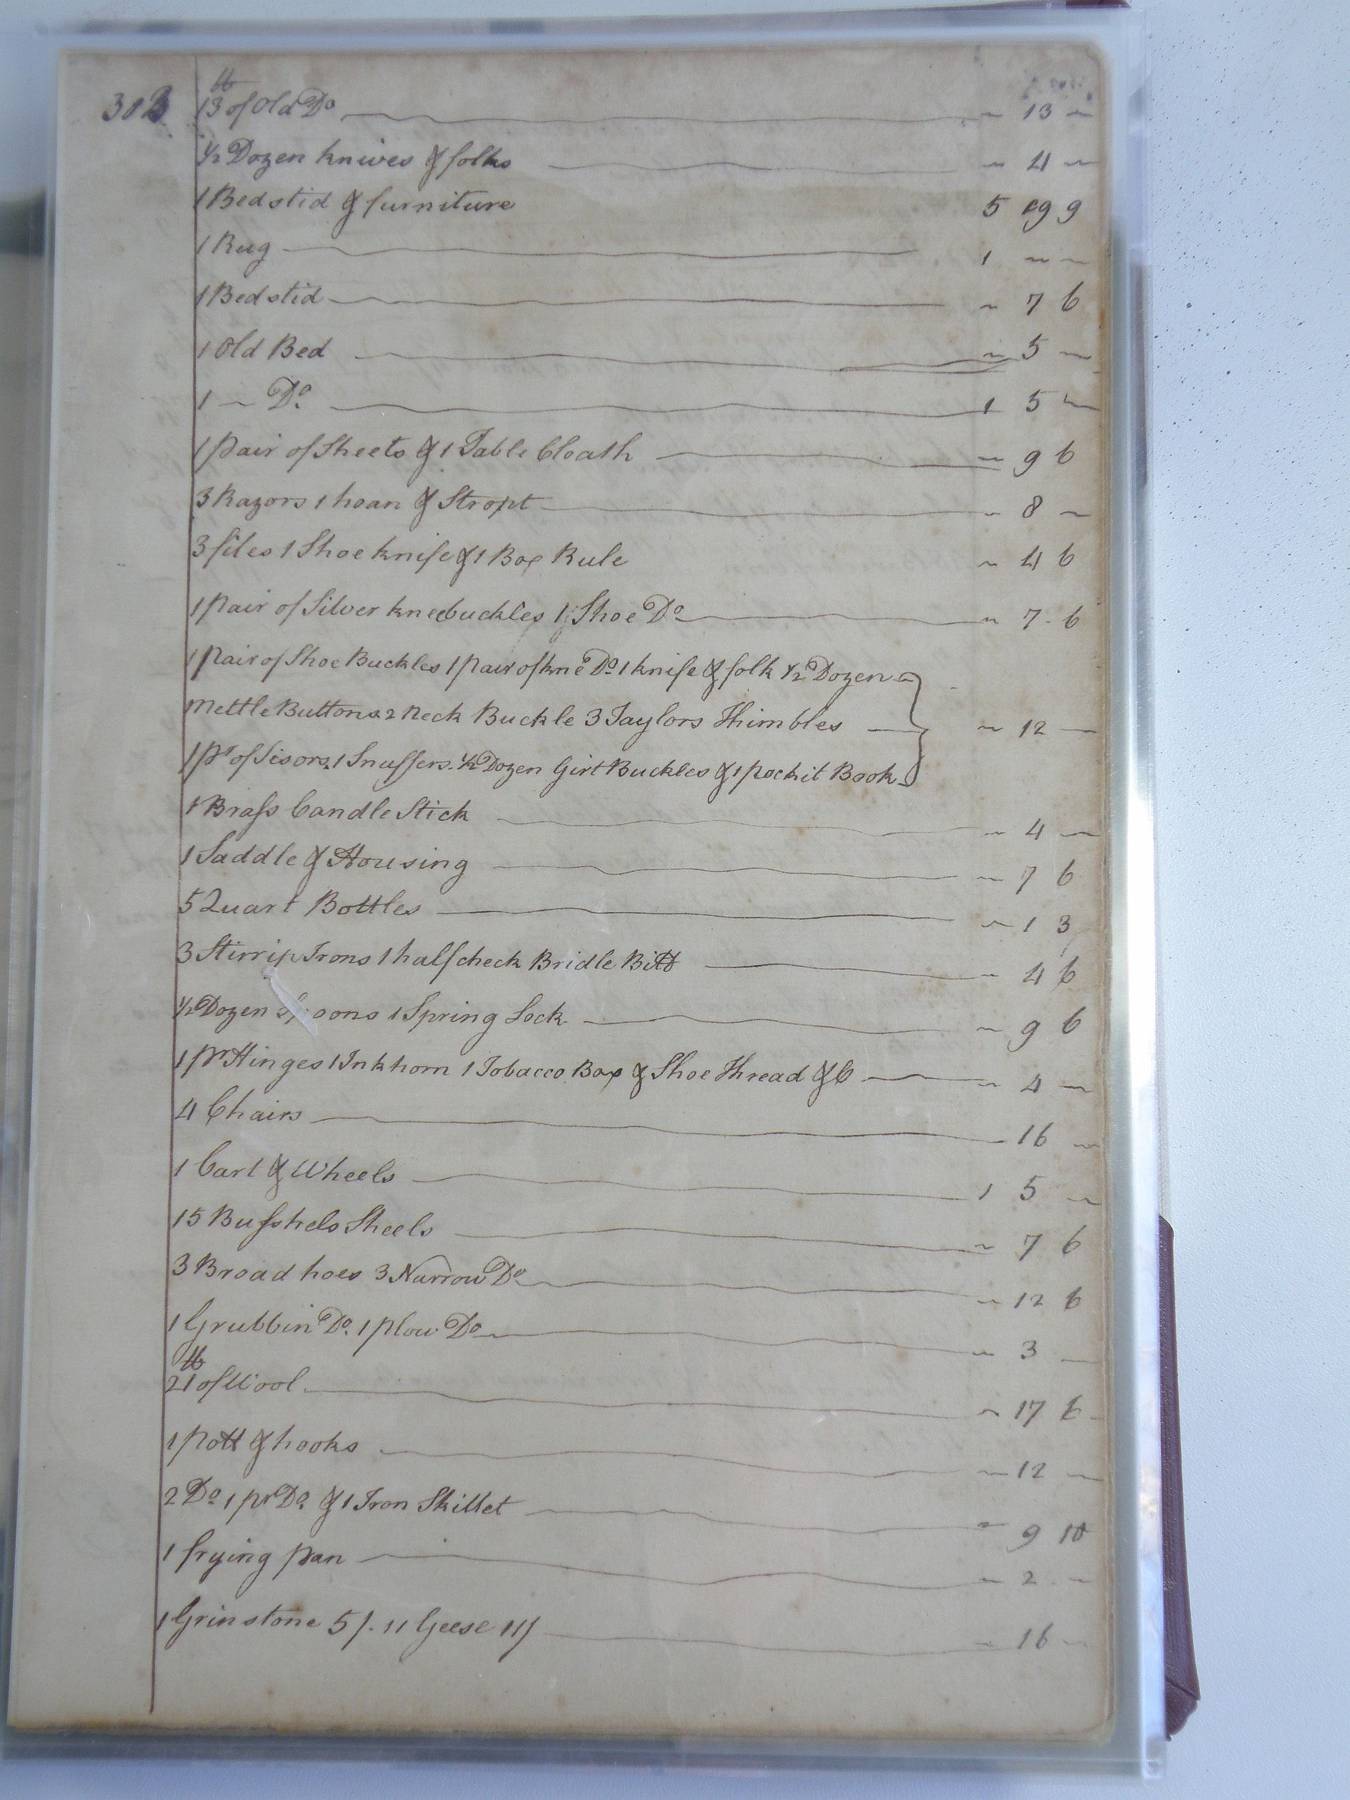 303 lb
13 of Old Do ~ 13 ~
½ Dozen knives & folks ~ 4 ~
1 Bedstid & furniture 5 19 9
1 Rug 1 ~ ~
1 Bedstid ~ 7 6
1 Old Bed ~ 5 ~
1 ~ Do 1 5 ~
1 pair of Sheets & 1 Table Cloath ~ 9 6
3 Razors 1 hoan & Stropt ~ 8 ~
3 files 1 Shoe knife & 1 Box Rule ~ 4 6
1 pair of Silver kneebuckles 1 Shoe Do ~ 7 6
1 pair of Shoe Buckles 1 pair of kne Do 1 knife & folk ½ Dozen
Mettle Buttons 2 Neck Buckle 3 Taylors Thimbles ~ 12 ~
1 pr of Sisors. 1 Snuffers. ½ Dozen Girt Buckles & 1 pockit Book
1 Brass Candle Stick ~ 4 ~
1 Saddle & Housing ~ 7 6
5 Quart Bottles ~ 1 3
3 Stirrip Irons 1 half check Bridle Bitt ~ 4 6
½ Dozen Spoons 1 Spring Lock ~ 9 6
1 pr Hinges 1 Inkhorn 1 Tobacco Box & Shoe Thread &C ~ 4 ~
4 Chairs 16 ~
1 Cart & Wheels 1 5 ~
15 Busshels Sheels ~ 7 6
3 Broad hoes 3 Narrow Do ~ 12 6
1 Grubbin Do. 1 plow Do ~ 3 ~
lb
21 of Wool ~ 17 6
1 pott & hooks ~ 12 ~
2 Do 1 pr Do & 1 Iron Skillet ~ 9 10
1 frying pan ~ 2 ~
1 Grinstone 5/. 11 Geese 11/ ~ 16 ~